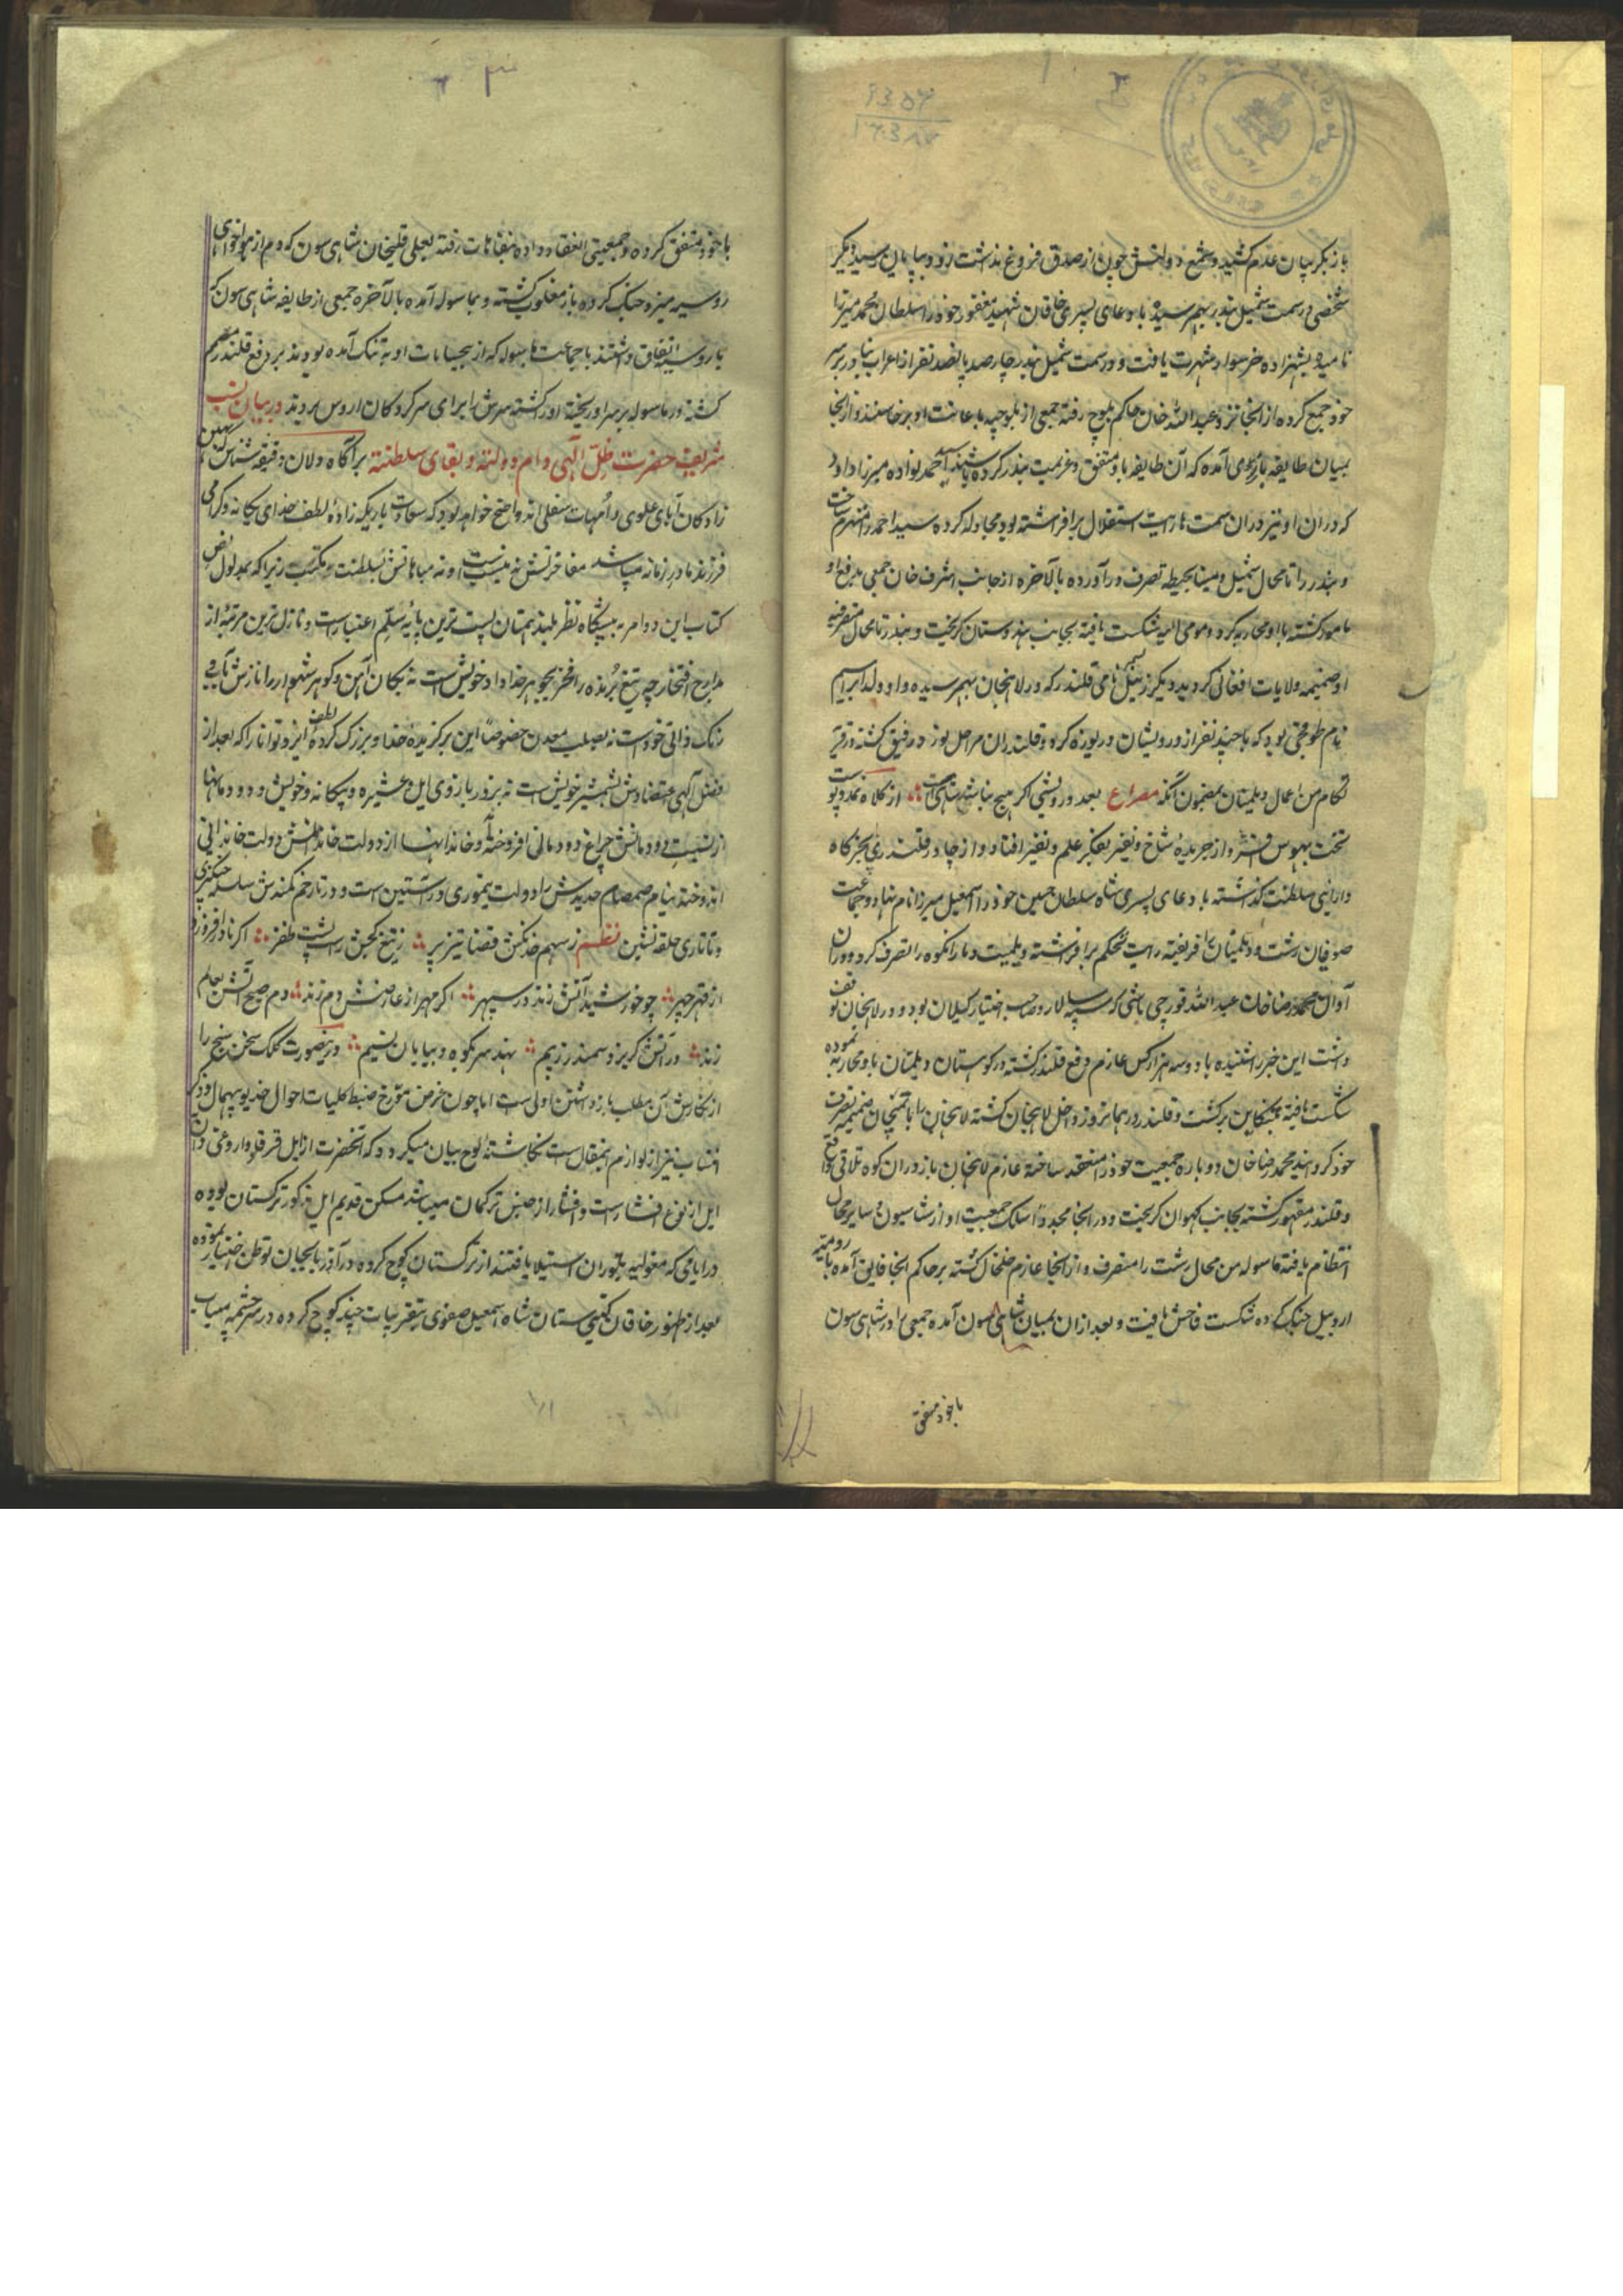 باز بگریبان عدم کشید و شمع دولتش چون از صدق فروغ نداشت زود بپایان رسید دیگر
شخصی در سمت شمیل بندر بهم رسیده بادعای پسری خاقان شهید مغفور خود را سلطان محمد میرزا
نامید و بشهزاده خر سوار شهرت یافت و در سمت شمیل بندر چارصد پانصد نفر از اعراب بنادر بر سر
خود جمع کرده از انجا نزد عبدالله خان حاکم بلوچ رفته جمعی از بلوچیه باعانت او برخاستند و از انجا
بمیان طایفه آمده که آن طایفه باو متفق و عزیمت بندر کرده با سید احمد نواده میرزا داود
که در ان اوان نیز در ان سمت رایت استقلال برافراشته بود مجادله کرده سید احمد را منهزم ساخت
و بندر را تا محال شمیل و مینا بحیطه تصرف درآورده بالاخره از جانب اشرف خان جمعی بدفع او
مامور کشته با او محاربه کرد و مومی الیه شکست یافته بجانب هندوستان کریخت و بندر تا محال متصرفیه
او ضمیمه ولایات افغانی کردید دیکر زینل نامی قلندر که در لاهجان بهم رسیده و او ولد ابراهیم
نام طوقچی بود که با چند نفر از درویشان دریوزه کرد و قلندران مراحل نورد رفیق کشته در قریه
لنکام من اعمال دیلمان بمضمون آنکه مصراع بعد درویشی اکر هیچ نباشد شاهیست از کلاه نمد و پوست
تخت بهوس افسر و از جریده شاخ و نفیر بفکر علم و نفیر افتاد و از چادر قلندری بخرکاه
دارایی سلطنت کذشته بادعای پسری شاه سلطان حسین خود را اسمعیل میرزا نام نهاد و جماعت
صوفیان رشت و دیلمان را فریفته رایت تحکم برافراشته دیلمان و رانکوه را تصرف کرد و در ان
اوان محمد رضا خان عبداللو قورچی باشی که سپه سالار و صاحب اختیار کیلان بود و در لاهجان توقف
داشت این خبر را شنیده با دو سه هزار کس عازم دفع قلندر کشته در کوهستان دیلمان با او محاربه نموده
شکست یافته بتنکابن برکشت و قلندر در همانروز داخل لاهجان کشته لاهجان را با تمیجان ضمیمه تصرف
خود کردانید محمد رضا خان دوباره جمعیت خود را منعقد ساخته عازم لاهجان باز در ان کوه تلاقی واقع
و قلندر مقهور کشته بجانب کریخت و در انجا مجددا سلک جمعیت او از شاهسیون و سایر محال
انتظام یافته ماسوله من محال رشت را متصرف و از انجا عازم خلخال کشته بر حاکم انجا فایق آمده با رومیه
اردبیل جنک کرده شکست فاحش یافت و بعد از ان بمیان شاهی سون آمده جمعی را در شاهی سون
با خود متفق
با خود متفق کرده و جمعیتی انعقاد داده بمغانات رفته بعلی قلیخان شاهی سون که دم از هواخواهی
روسیه میزد جنک کرده باز مغلوب کشته و بماسوله آمده بالاخره جمعی از طایفه شاهی سون که
با روسیه اتفاق داشتند با جماعت ماسوله که از بیحسابات او به تنک آمده بودند بر دفع قلندر مصمم
کشته در ماسوله بر سر او ریخته او را کشته سرش را برای سرکردکان اروس بردند در بیان نسب
شریف حضرت ظل الهی دام دولته و بقای سلطنته بر آکاه دلان دقیقه شناس که مهین
زادکان آبای علوی و امهات سفلی اند واضح خواهد بود که سعادت یاریکه زاده لطف خدای یکانه و کرامی
فرزند مادر زمانه میباشد مفاخرتش نه بنسبت است و نه مباهاتش بسلطنت مکتسب زیرا که بمدلول نص
کتاب این دو امر به پیشکاه نظر بلند همتان پست ترین پایه سلم اعتبار است و نازل ترین مرتبه از
مدارج افتخار چه تیغ برنده را فخر بجوهر خداداد خویش است نه بکان آهن و کوهر شهوار را نازش بآب و
رنک ذاتی خود است نه بصلب معدن خصوصا این برکزیده خدا و بزرک کرده لطف ایزد توانا را که بعد از
فضل الهی اعتضادش بشمشیر خویش است نه بزور بازوی ایل و عشیره و بیکانه و خویش و دودمانها
از نسبت دودمانش چراغ دودمانی افروخته و خاندانها از دولت خاندانش دولت خاندانی
اندوخته بنیام صمصام حدیدش را دولت تیموری در آستین است و در تار خم کمندش سلسله چنکیزی
و تاتاری حلقه نشین نظم ز سهم خدنکش قضا تیز پر ز تیغ کجش راست پشت ظفر اکر نادر افروزد
از قهر چهر چو خورشید آتش زند در سپهر اکر مهر از عارضش دم زند دم صبح آتش بعالم
زند در آتش کریزد سمندر ز بیم نهد سر بکوه و بیابان نسیم درینصورت کلک سخن سنج را
از نکارش آن مطلب بازداشتن اولی است اما چون غرض مورخ ضبط کلیات احوال خدیو بیهمال و ذکر
انساب نیز از لوازم اینمقال است نکاشته لوح بیان میکردد که آنحضرت از ایل قرقلو و اروغی و آن
ایل از نوع افشار است و افشار از جنس ترکمان میباشد مسکن قدیم ایل مذکور ترکستان بوده
در ایامی که مغولیه بتوران استیلا یافتند از ترکستان کوچ کرده در آذربایجان توطن اختیار نموده
بعد از ظهور خاقان کیتی ستان شاه اسمعیل صفوی بتقریبات چند کوچ کرده در سرچشمه میاب